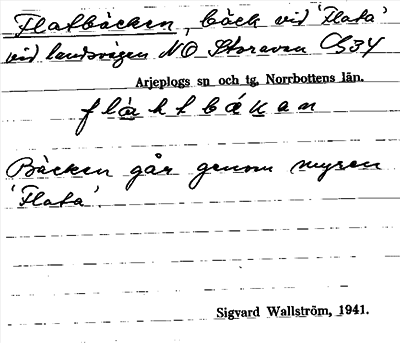 Flatbäcken, bäck vid 'Flata'
vid landsvägen NO Storavan CS34
Arjeplogs sn och tg, Norrbottens län.
Bäcken går genom myren
'Flata'.
Sigvard Wallström, 1941.